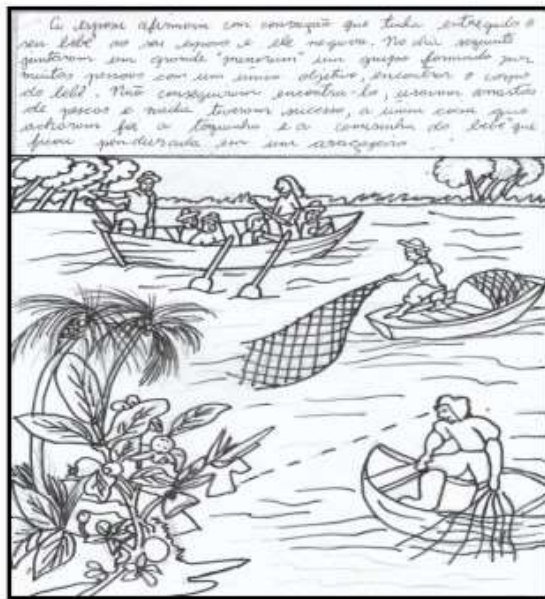 A esposa afirmava com convicção que tinha entregado o
seu bebê ao seu esposo e ele negava. No dia seguinte
juntaram um grande "menorum" um grupo formado por
muitas pessoas com um único objetivo, encontrar o corpo
do bebê. Não conseguiram encontra-lo, usaram
de pescas e nada tiveram sucesso, a única coisa que
acharam foi a toquinha e a camisinha do bebê que
ficou pendurada em um araçazeiro